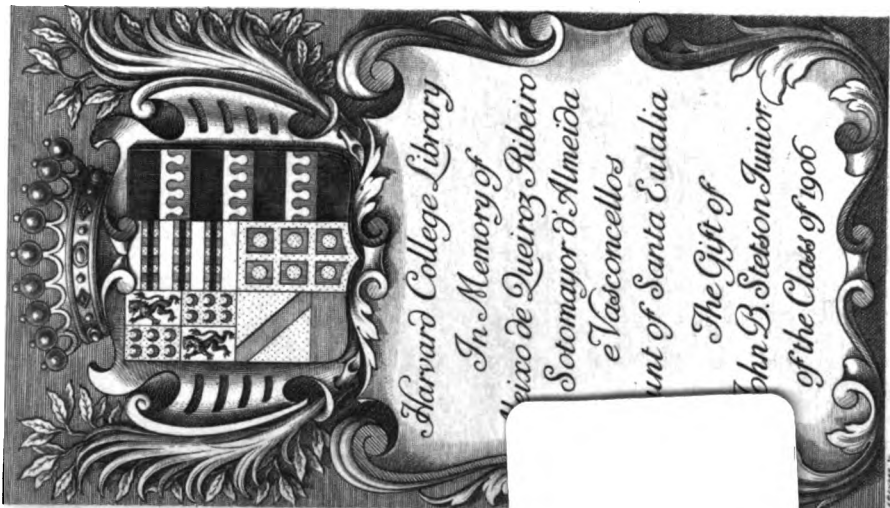 Harvard College Library
In Memory of
leixo de Queiroz Ribeiro
Sotomayor d'Almeida
e Vasconcellos
unt of Santa Eulalia
The Gift of
ohn B. Stetson Junior
of the Class of 1906